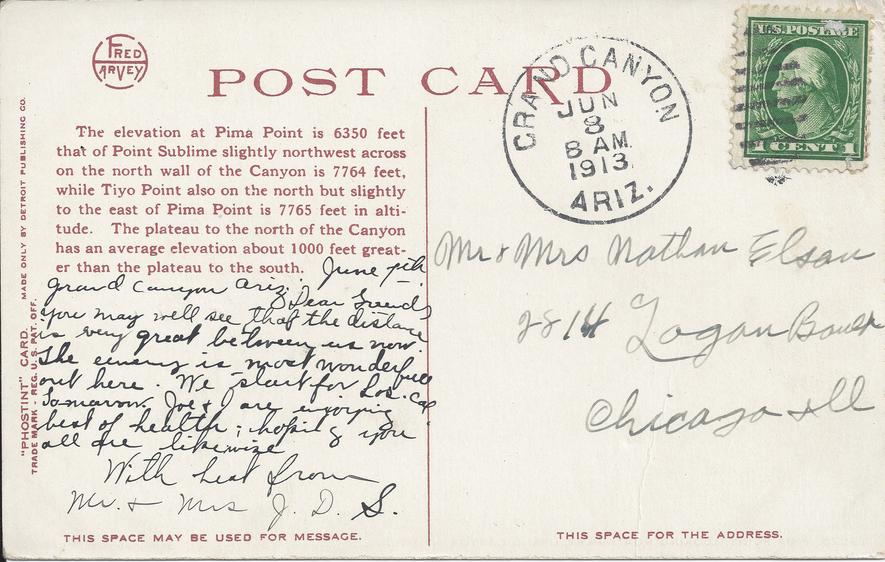 FRED
HARVEY
POST CARD
GRAND CANYON
JUN
8
8 AM
1913
ARIZ.
U.S. POSTAGE
1 CENT 1
The elevation at Pima Point is 6350 feet
that of Point Sublime slightly northwest across
on the north wall of the Canyon is 7764 feet,
while Tiyo Point also on the north but slightly
to the east of Pima Point is 7765 feet in alti-
tude. The plateau to the north of the Canyon
has an average elevation about 1000 feet great-
er than the plateau to the south.
June
Grand Canyon Ariz.
Dear Friends
you may well see that the distance
is very great between us now.
The cenery is most wonderfull
out here. We start for Los. Cal
Tomarrow. Joe & I are enjoying
best of health; hoping you
all are likewize
With best from
Mr. & Mrs J. D. S.
Mr & Mrs Nathan Elson
2814 Logan
Chicago Ill
"PHOSTINT" CARD. MADE ONLY BY DETROIT PUBLISHING CO.
TRADE MARK - REG. U. S. PAT. OFF.
THIS SPACE MAY BE USED FOR MESSAGE.
THIS SPACE FOR THE ADDRESS.